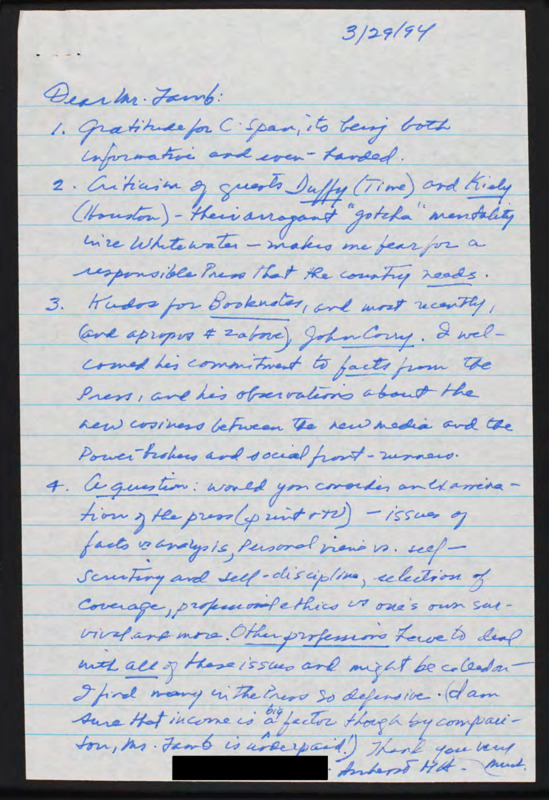 3/29/94
Dear Mr. Lamb:
1. Gratitude for C-Span, its being both
informative and even-handed.
2. Criticism of guests Duffy (Time) and Kiely
(Houston) - their arrogant "gotcha" mentality
in re Whitewater - makes me fear for a
responsible Press that the country needs.
3. Kudos for Booknotes, and most recently,
(and apropos # 2 above), John Corry. I wel-
comed his commitment to facts from the
Press, and his observations about the
new cosiness between the new media and the
Power brokers and social front-runners.
4. A question: would you consider an examina-
tion of the press (print & TV) - issues of
facts vs analysis, Personal views vs. self-
scrutiny and self-discipline, selection of
coverage, professional ethics vs one's own sur-
vival and more. Other professions have to deal
with all of these issues and might be called on -
I find many in the Press so defensive. (I am
sure that income is a big factor though by compari-
son, Mr. Lamb is underpaid!) Thank you very
much.
Amherst MA -